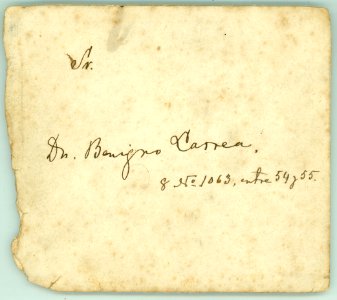 Sr.
Dn. Benigno Larrea.
8 No. 1063, entre 54 y 55.